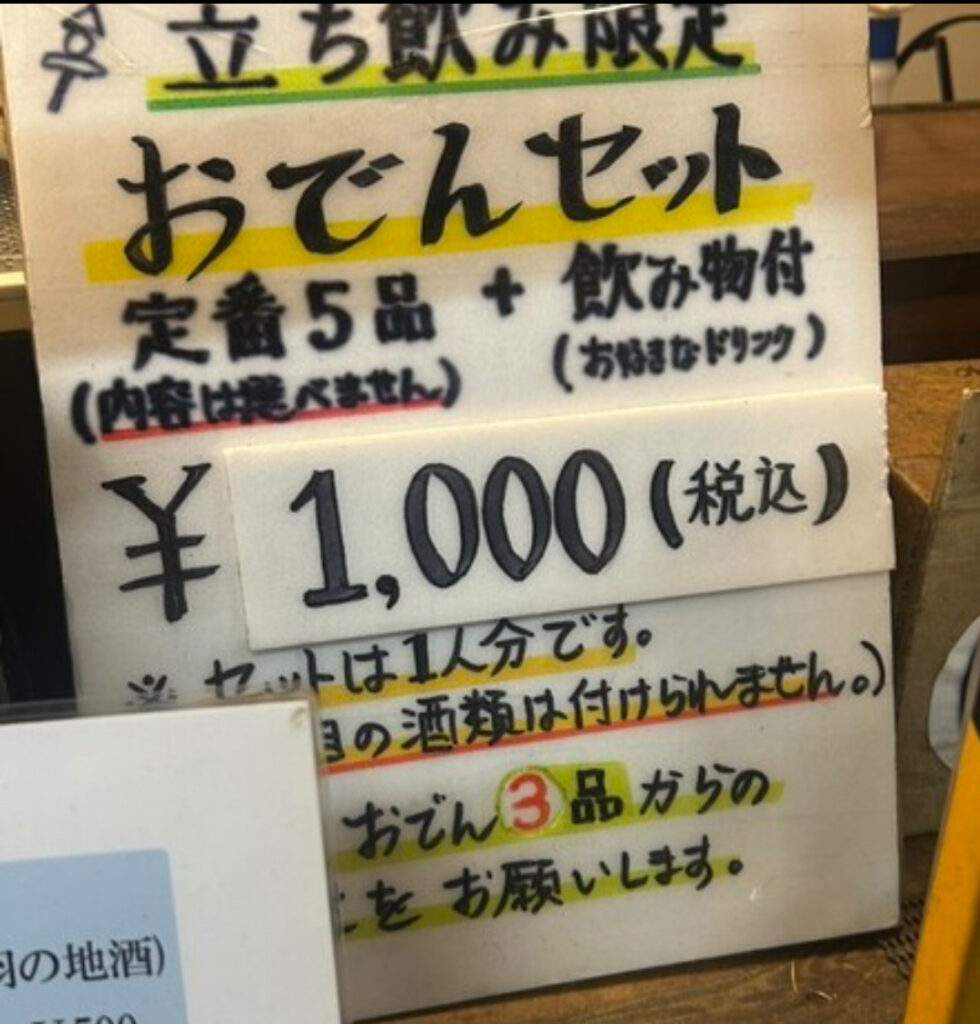 立ち飲み限定
おでんセット
定番5品 + 飲み物付
(内容は選べません) (お好きなドリンク)
¥1,000(税込)
※ セットは1人分です。
の酒類は付けられません。)
おでん3品からの
をお願いします。
の地酒)